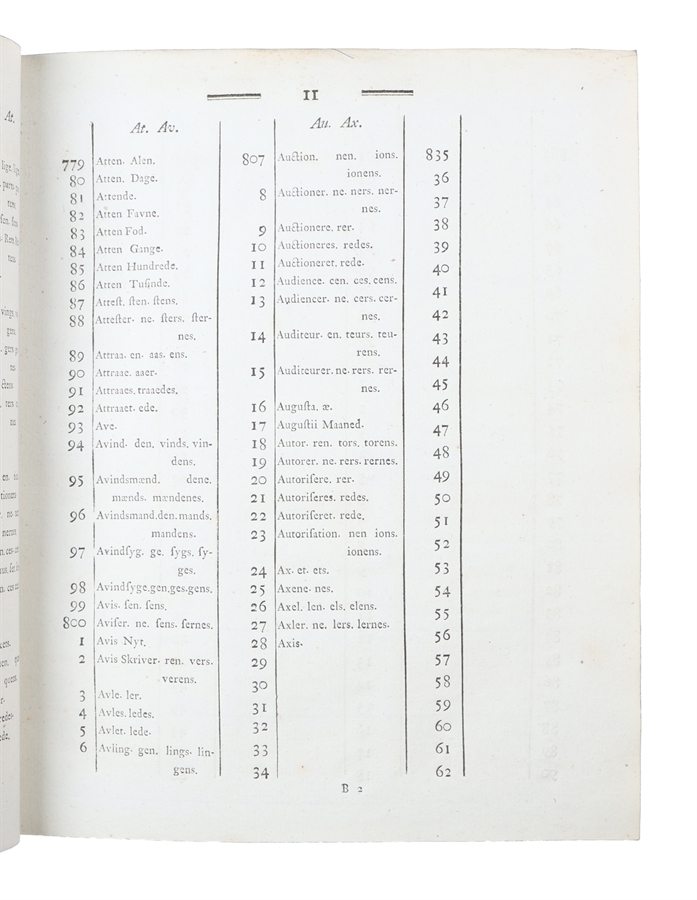 11
At. Av.
779 Atten. Alen.
80 Atten. Dage.
81 Attende.
82 Atten Favne.
83 Atten Fod.
84 Atten Gange.
85 Atten Hundrede.
86 Atten Tuſinde.
87 Atteſt. ſten. ſtens.
88 Atteſter. ne. ſters. ſter-
nes.
89 Attraa. en. aas. ens.
90 Attraae. aaer.
91 Attraaes. traaedes.
92 Attraaet. ede.
93 Ave.
94 Avind. den. vinds. vin-
dens.
95 Avindsmænd. dene.
mænds. mændenes.
96 Avindsmand. den. mands.
mandens.
97 Avindſyg. ge. ſygs. ſy-
ges.
98 Avindſyge. gen. ges. gens.
99 Avis. ſen. ſens.
800 Aviſer. ne. ſens. ſernes.
1 Avis Nyt.
2 Avis Skriver. ren. vers.
verens.
3 Avle. ler.
4 Avles. ledes.
5 Avlet. lede.
6 Avling. gen. lings. lin-
gens.
Au. Ax.
807 Auction. nen. ions.
ionens.
8 Auctioner. ne. ners. ner-
nes.
9 Auctionere. rer.
10 Auctioneres. redes.
11 Auctioneret. rede.
12 Audience. cen. ces. cens.
13 Audiencer. ne. cers. cer-
nes.
14 Auditeur. en. teurs. teu-
rens.
15 Auditeurer. ne. rers. rer-
nes.
16 Auguſta. æ.
17 Auguſtii Maaned.
18 Autor. ren. tors. torens.
19 Autorer. ne. rers. rernes.
20 Autoriſere. rer.
21 Autoriſeres. redes.
22 Autoriſeret. rede.
23 Autoriſation. nen ions.
ionens.
24 Ax. et. ets.
25 Axene. nes.
26 Axel. len. els. elens.
27 Axler. ne. lers. lernes.
28 Axis.
29
30
31
32
33
34
835
36
37
38
39
40
41
42
43
44
45
46
47
48
49
50
51
52
53
54
55
56
57
58
59
60
61
62
B 2